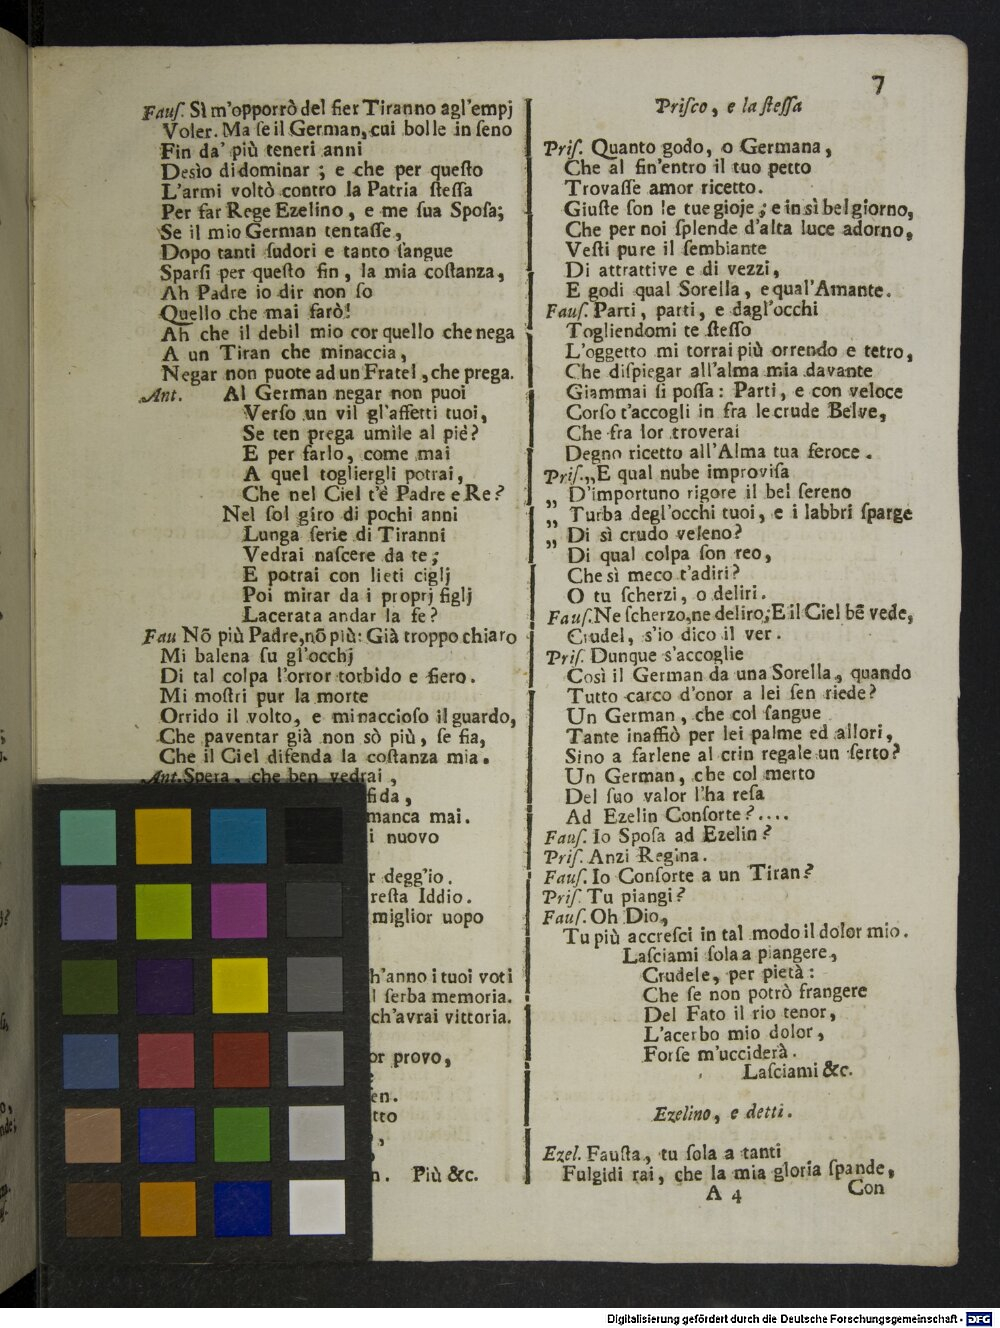 7
Fauſ. Sì m'opporrò del fier Tiranno agl'empj
Voler. Ma ſe il German, cui bolle in ſeno
Fin da' più teneri anni
Desìo di dominar ; e che per queſto
L'armi voltò contro la Patria ſteſſa
Per far Rege Ezelino, e me ſua Spoſa;
Se il mio German tentaſſe,
Dopo tanti ſudori e tanto ſangue
Sparſi per queſto fin, la mia coſtanza,
Ah Padre io dir non ſo
Quello che mai farò!
Ah che il debil mio cor quello che nega
A un Tiran che minaccia,
Negar non puote ad un Fratel, che prega.
Ant. Al German negar non puoi
Verſo un vil gl'affetti tuoi,
Se ten prega umìle al piè?
E per farlo, come mai
A quel togliergli potrai,
Che nel Ciel t'è Padre e Re?
Nel ſol giro di pochi anni
Lunga ſerie di Tiranni
Vedrai naſcere da te;
E potrai con lieti ciglj
Poi mirar da i proprj figlj
Lacerata andar la fe?
Fau Nō più Padre, nō più: Già troppo chiaro
Mi balena ſu gl'occhj
Di tal colpa l'orror torbido e fiero.
Mi moſtri pur la morte
Orrido il volto, e minaccioſo il guardo,
Che paventar già non sò più, ſe fia,
Che il Ciel difenda la coſtanza mia.
Ant. Spera, che ben vedrai,
fida,
manca mai.
i nuovo
r degg'io.
reſta Iddio.
miglior uopo
h'anno i tuoi voti
l ſerba memoria.
ch'avrai vittoria.
or provo,
e
en.
tto
,
n. Più &c.
Priſco, e la ſteſſa
Priſ. Quanto godo, o Germana,
Che al fin'entro il tuo petto
Trovaſſe amor ricetto.
Giuſte ſon le tue gioje; e in sì bel giorno,
Che per noi ſplende d'alta luce adorno,
Veſti pure il ſembiante
Di attrattive e di vezzi,
E godi qual Sorella, e qual'Amante.
Fauſ. Parti, parti, e dagl'occhi
Togliendomi te ſteſſo
L'oggetto mi torrai più orrendo e tetro,
Che diſpiegar all'alma mia davante
Giammai ſi poſſa: Parti, e con veloce
Corſo t'accogli in fra le crude Belve,
Che fra lor troverai
Degno ricetto all'Alma tua feroce.
Priſ. „E qual nube improviſa
„ D'importuno rigore il bel ſereno
„ Turba degl'occhi tuoi, e i labbri ſparge
„ Di sì crudo veleno?
Di qual colpa ſon reo,
Che sì meco t'adiri?
O tu ſcherzi, o deliri.
Fauſ. Ne ſcherzo, ne deliro; E il Ciel bē vede,
Crudel, s'io dico il ver.
Priſ. Dunque s'accoglie
Così il German da una Sorella, quando
Tutto carco d'onor a lei ſen riede?
Un German, che col ſangue
Tante inaffiò per lei palme ed allori,
Sino a farlene al crin regale un ſerto?
Un German, che col merto
Del ſuo valor l'ha reſa
Ad Ezelin Conſorte?....
Fauſ. Io Spoſa ad Ezelin?
Priſ. Anzi Regina.
Fauſ. Io Conſorte a un Tiran?
Priſ. Tu piangi?
Fauſ. Oh Dio,
Tu più accreſci in tal modo il dolor mio.
Laſciami ſola a piangere,
Crudele, per pietà:
Che ſe non potrò frangere
Del Fato il rio tenor,
L'acerbo mio dolor,
Forſe m'ucciderà.
Laſciami &c.
Ezelino, e detti.
Ezel. Fauſta, tu ſola a tanti
Fulgidi rai, che la mia gloria ſpande,
A 4
Con
Digitalisierung gefördert durch die Deutsche Forschungsgemeinschaft - DFG